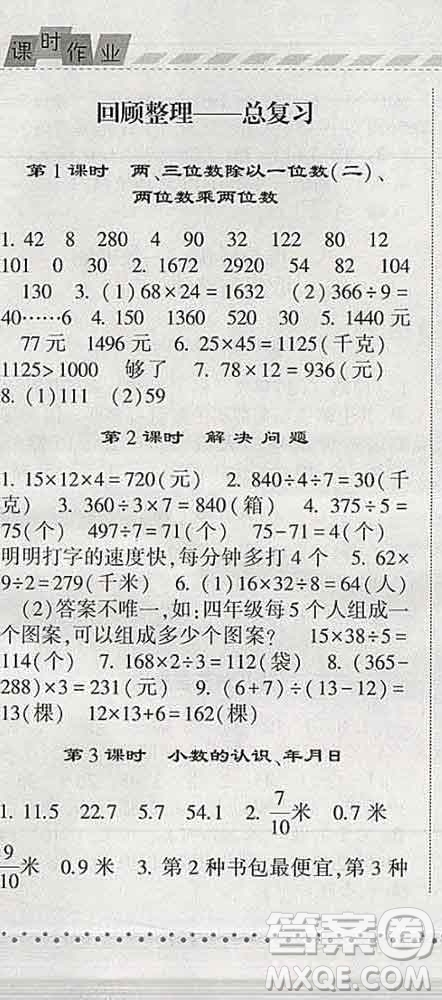 课时作业
回顾整理——总复习
第1课时 两、三位数除以一位数(二)、
两位数乘两位数
1. 42 8 280 4 90 32 122 80 12
101 0 30 2. 1672 2920 54 82 104
130 3. (1)68×24=1632 (2)366÷9=
40……6 4. 150 1360 150 5. 1440元
77元 1496元 6. 25×45=1125(千克)
1125>1000 够了 7. 78×12=936(元)
8. (1)111 (2)59
第2课时 解决问题
1. 15×12×4=720(元) 2. 840÷4÷7=30(千
克) 3. 360÷3×7=840(箱) 4. 375÷5=
75(个) 497÷7=71(个) 75-71=4(个)
明明打字的速度快,每分钟多打4个 5. 62×
9÷2=279(千米) 6. (1)16×32÷8=64(人)
(2)答案不唯一,如:四年级每5个人组成一
个图案,可以组成多少个图案? 15×38÷5=
114(个) 7. 168×2÷3=112(袋) 8. (365-
288)×3=231(元) 9. (6+7)÷(13-12)=
13(棵) 12×13+6=162(棵)
第3课时 小数的认识、年月日
1. 11.5 22.7 5.7 54.1 2. 7/10米 0.7米
9/10米 0.9米 3. 第2种书包最便宜,第3种
答案卷
MXQE.COM